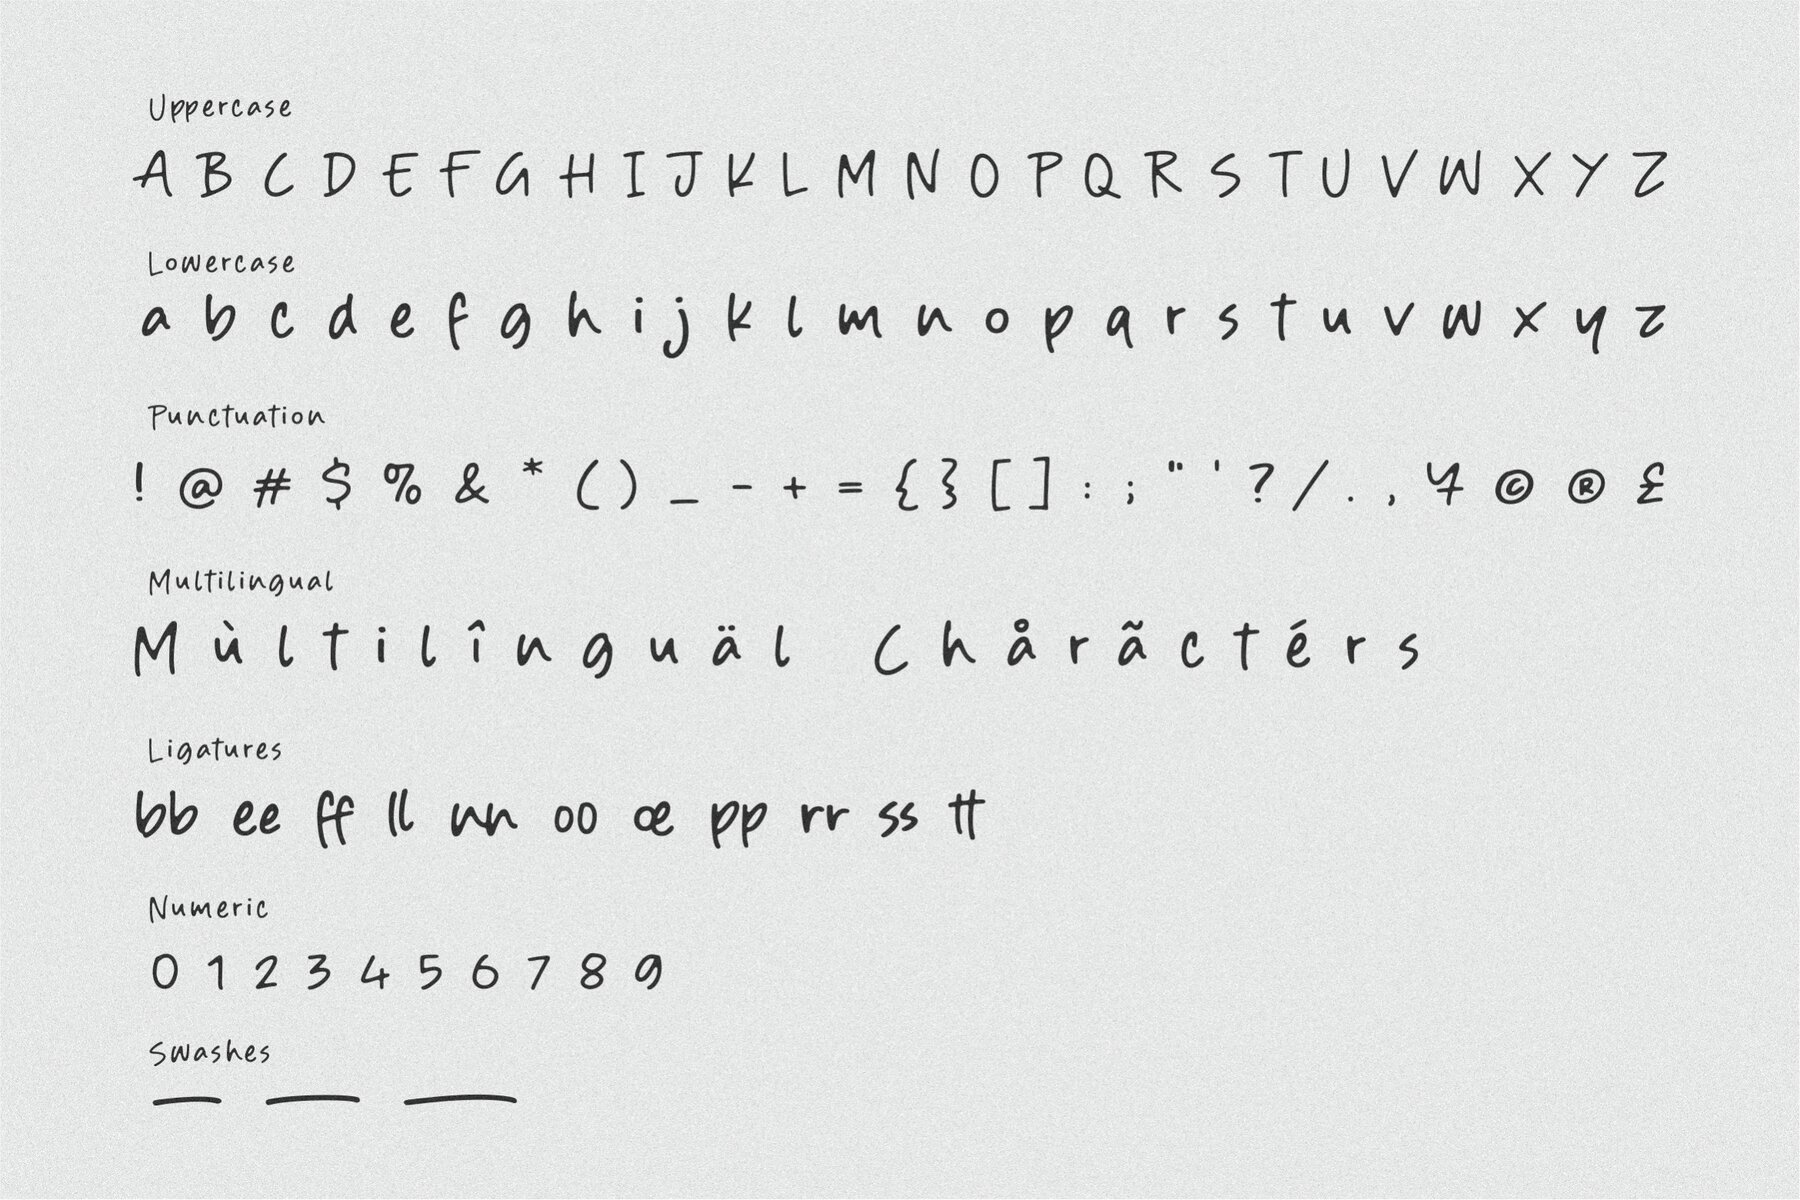 Uppercase
A B C D E F G H I J K L M N O P Q R S T U V W X Y Z
Lowercase
a b c d e f g h i j k l m n o p q r s t u v w x y z
Punctuation
! @ # $ % & * ( ) _ - + = { } [ ] : ; " ' ? / . , ¥ © ® £
Multilingual
M ù l t i l î n g u ä l C h å r ã c t é r s
Ligatures
bb ee ff ll nn oo œ pp rr ss tt
Numeric
0 1 2 3 4 5 6 7 8 9
Swashes